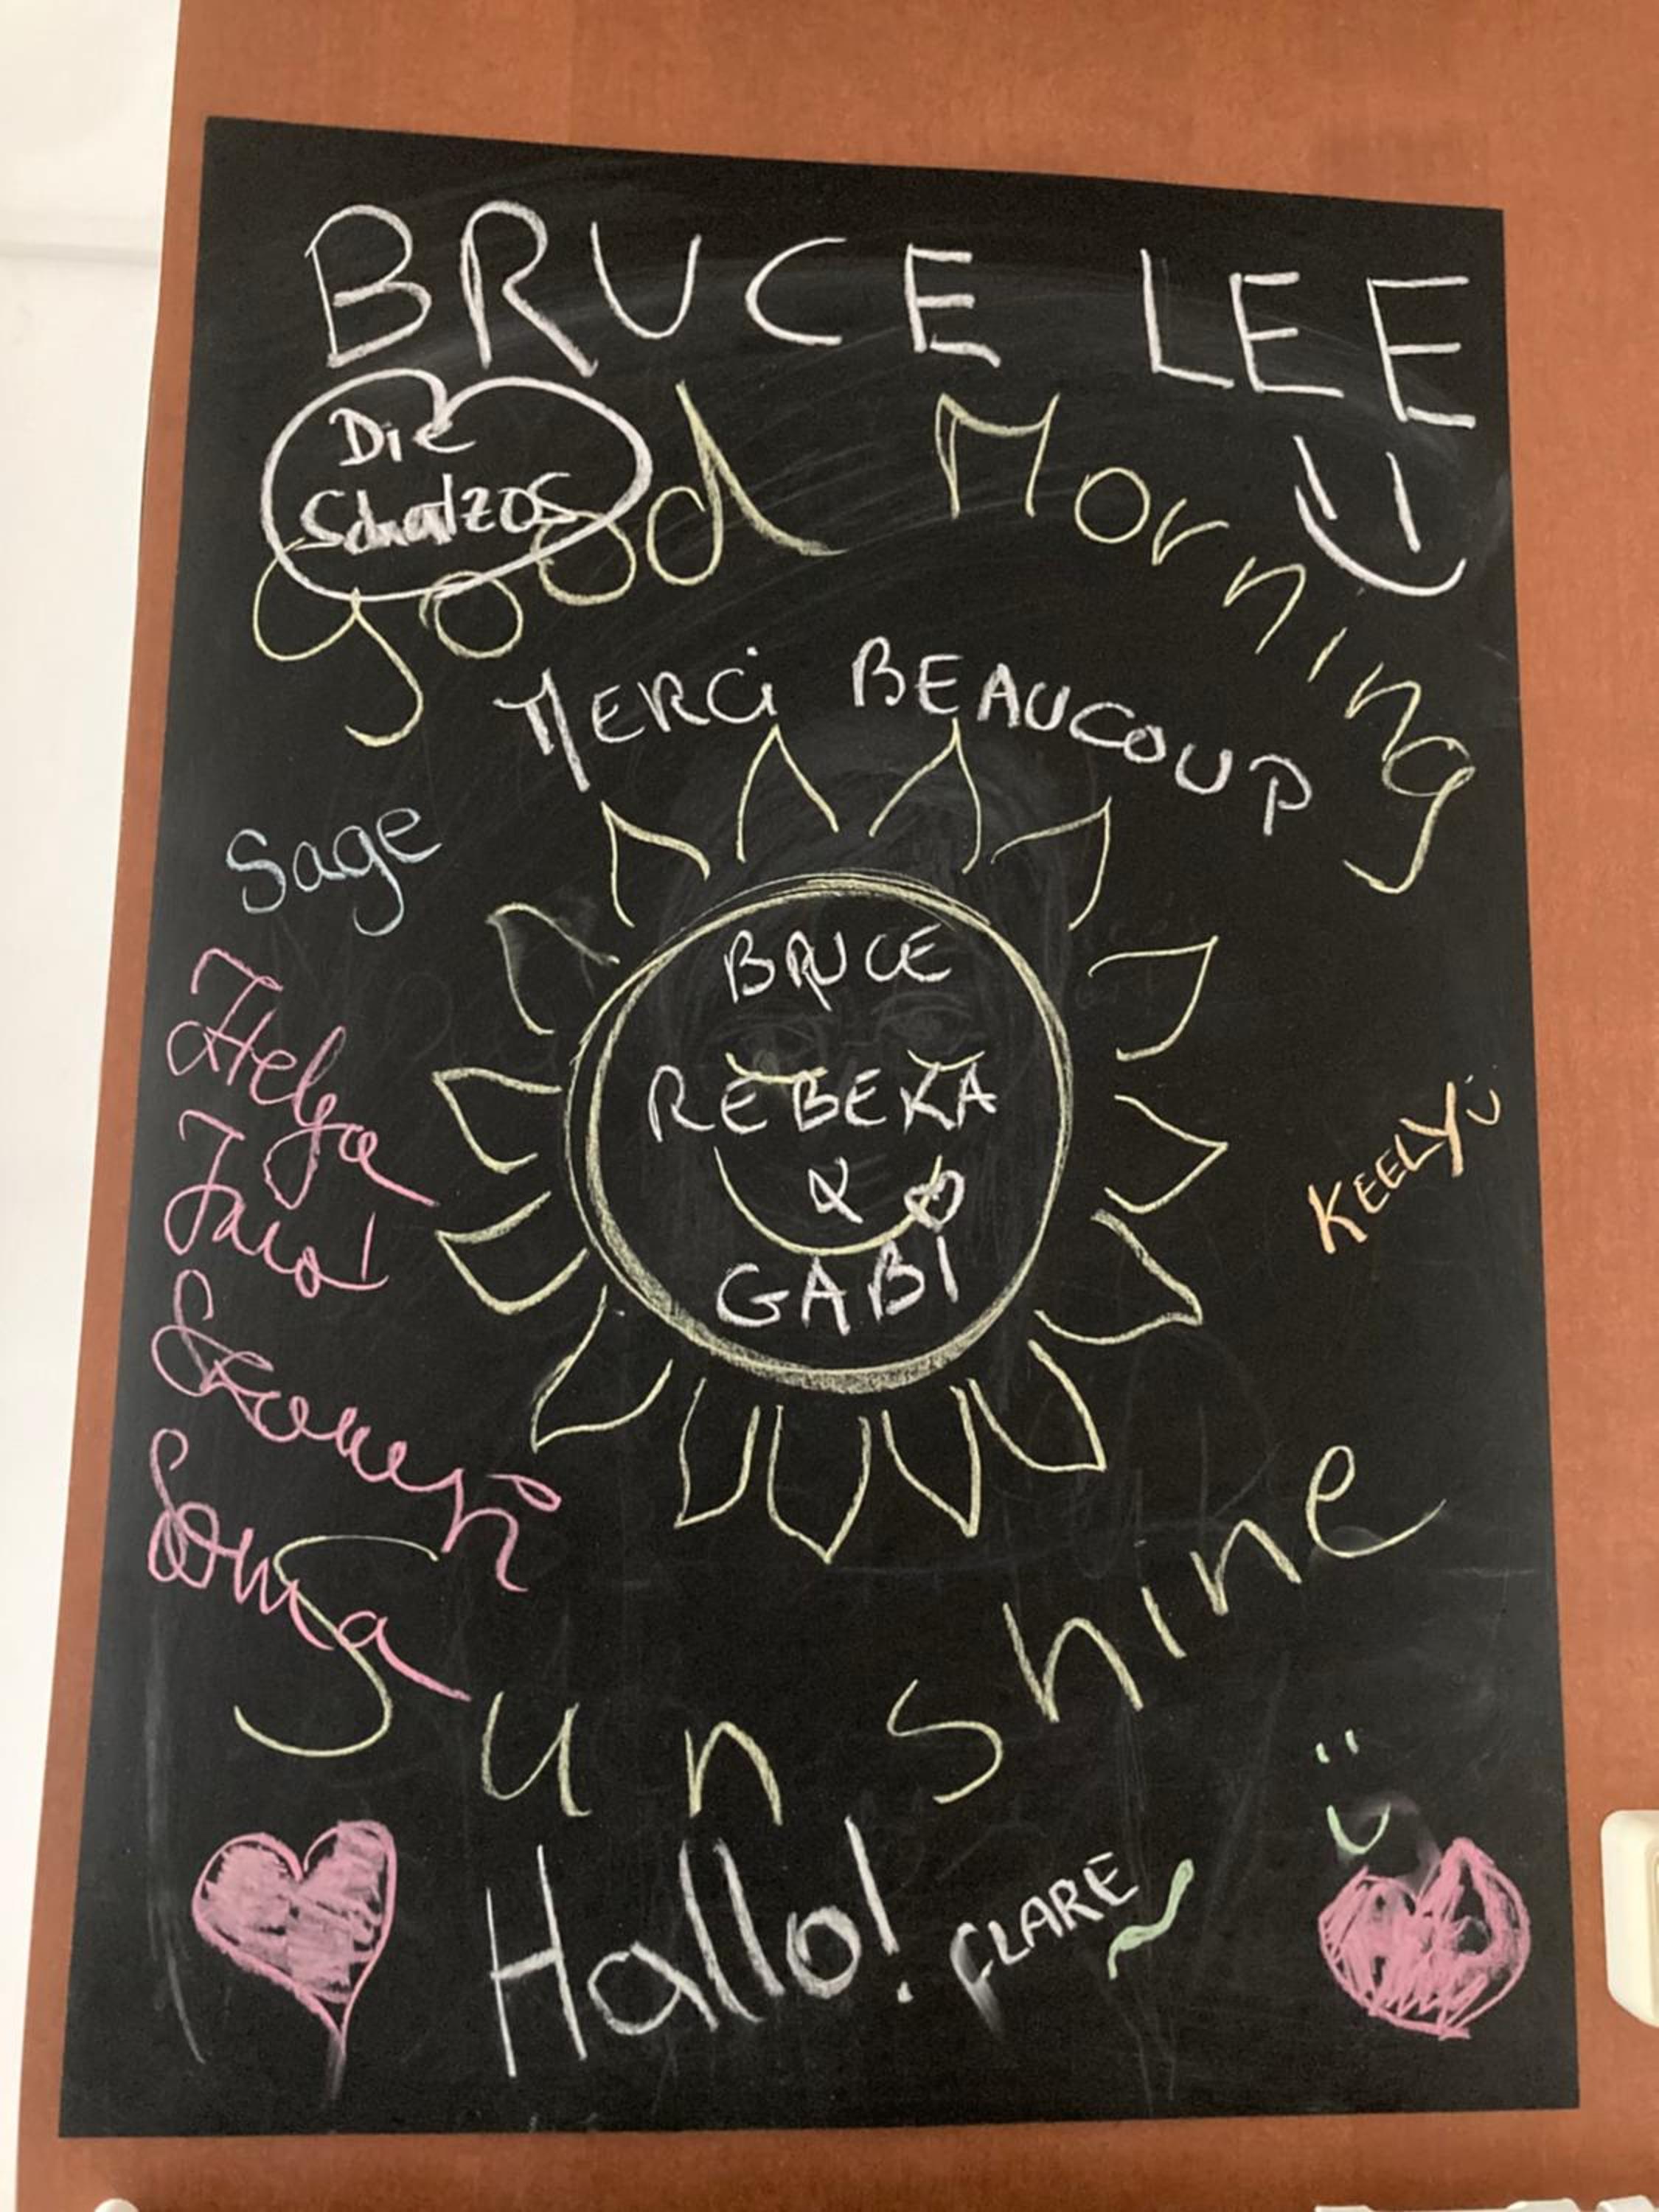 BRUCE LEE
Die
Schatzos
good Morning
MERCi BEAUCOUP
Sage
BRUCE
REBEKA
&
GABI
Helga
KEELY
Sonja
Sunshine
Hallo!
FLARE